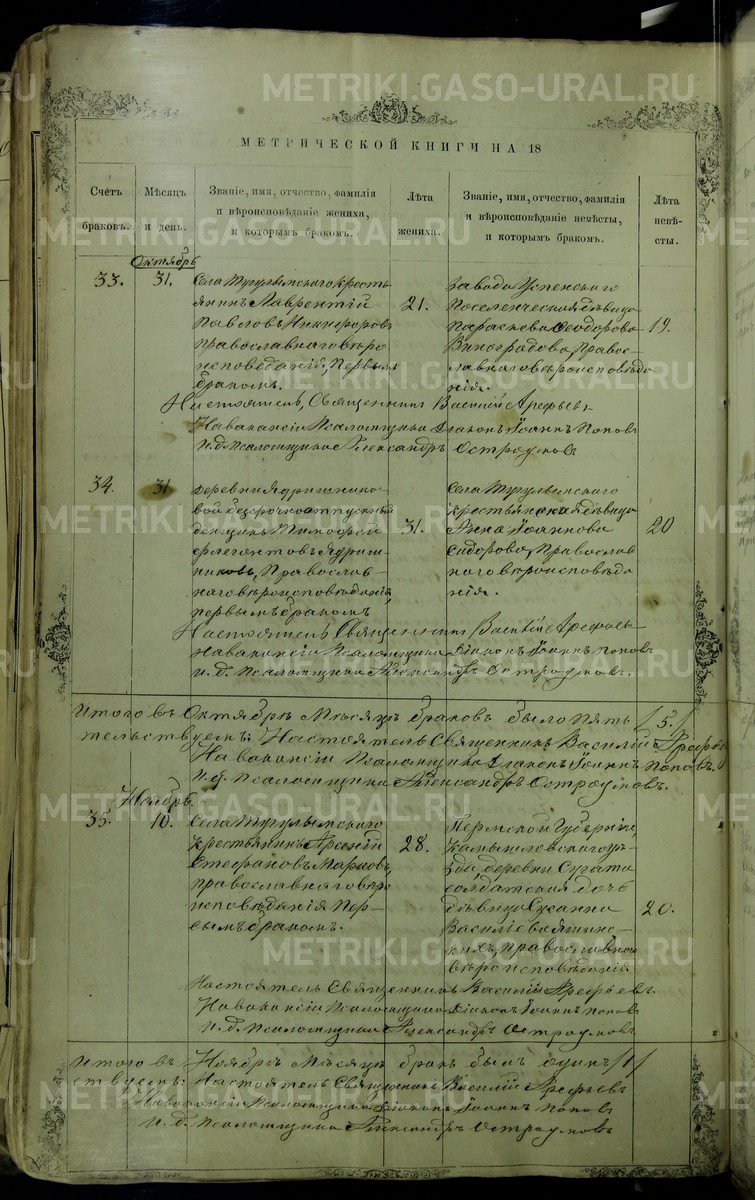 METRIKI.GASO-URAL.RU
МЕТРИЧЕСКОЙ КНИГИ НА 18
Счетъ браковъ.
Мѣсяцъ и день.
Званіе, имя, отчество, фамилія и вѣроисповѣданіе жениха, и которымъ бракомъ.
Лѣта жениха.
Званіе, имя, отчество, фамилія и вѣроисповѣданіе невѣсты, и которымъ бракомъ.
Лѣта невѣсты.
Октябрь
33. 31.
Села Тугулымскаго кресть
янинъ Лаврентій
Павловъ Никифоровъ
православнаго вѣро
исповеданія, Первымъ
бракомъ.
21.
Завода Успенскаго
Поселенческая дѣвица
Параскева Ѳеодорова
Виноградова, Правос-
лавнаго вѣроисповѣда
нія.
19.
Настоятель, Священникъ Василій Арефьевъ
На вакансіи Псаломщика Діаконъ Іоаннъ Поповъ
И.д. Псаломщика Александръ Остроумовъ
34. 31
Деревни Ядрышнико-
вой безсрочноотпускный
денщикъ Тимофей
Ядрыш-
никовъ, Православ-
наго вѣроисповѣданія,
первымъ бракомъ
31.
Села Тугулымскаго
крестьянская дѣвица
Анна Іоаннова
Сидорова, Православ
наго вѣроисповѣда
нія.
20
Настоятель Священникъ Василій Арефьевъ
На вакансіи Псаломщика Діаконъ Іоаннъ Поповъ
И.д. Псаломщика Александръ Остроумовъ.
Итого въ Октябрѣ Мѣсяцѣ браковъ было пять /5/
тельствуемъ: Настоятель Священникъ Василій Арефьевъ
На вакансіи Псаломщика Діаконъ Іоаннъ Поповъ.
И.д. Псаломщика Александръ Остроумовъ.
Ноябрь.
35. 10.
Села Тугулымскаго
крестьянинъ Арсеній
Стефановъ Марковъ,
православнаго вѣро
исповѣданія Пер-
вымъ бракомъ.
28.
Пермской Губерніи,
Камышловскаго уѣ-
зда, деревни Сугата
солдатская дочь
дѣвица Сусанна
Василіева
православнаго
вѣроисповѣданія
20.
Настоятель Священникъ Василій Арефьевъ.
На вакансіи Псаломщика Діаконъ Іоаннъ Поповъ
И.д. Псаломщика Александръ Остроумовъ
Итого въ Ноябрѣ Мѣсяцѣ бракъ былъ одинъ /1/
ствуемъ: Настоятель Священникъ Василій Арефьевъ
На вакансіи Псаломщика Діаконъ Іоаннъ Поповъ
И.д. Псаломщика Александръ Остроумовъ